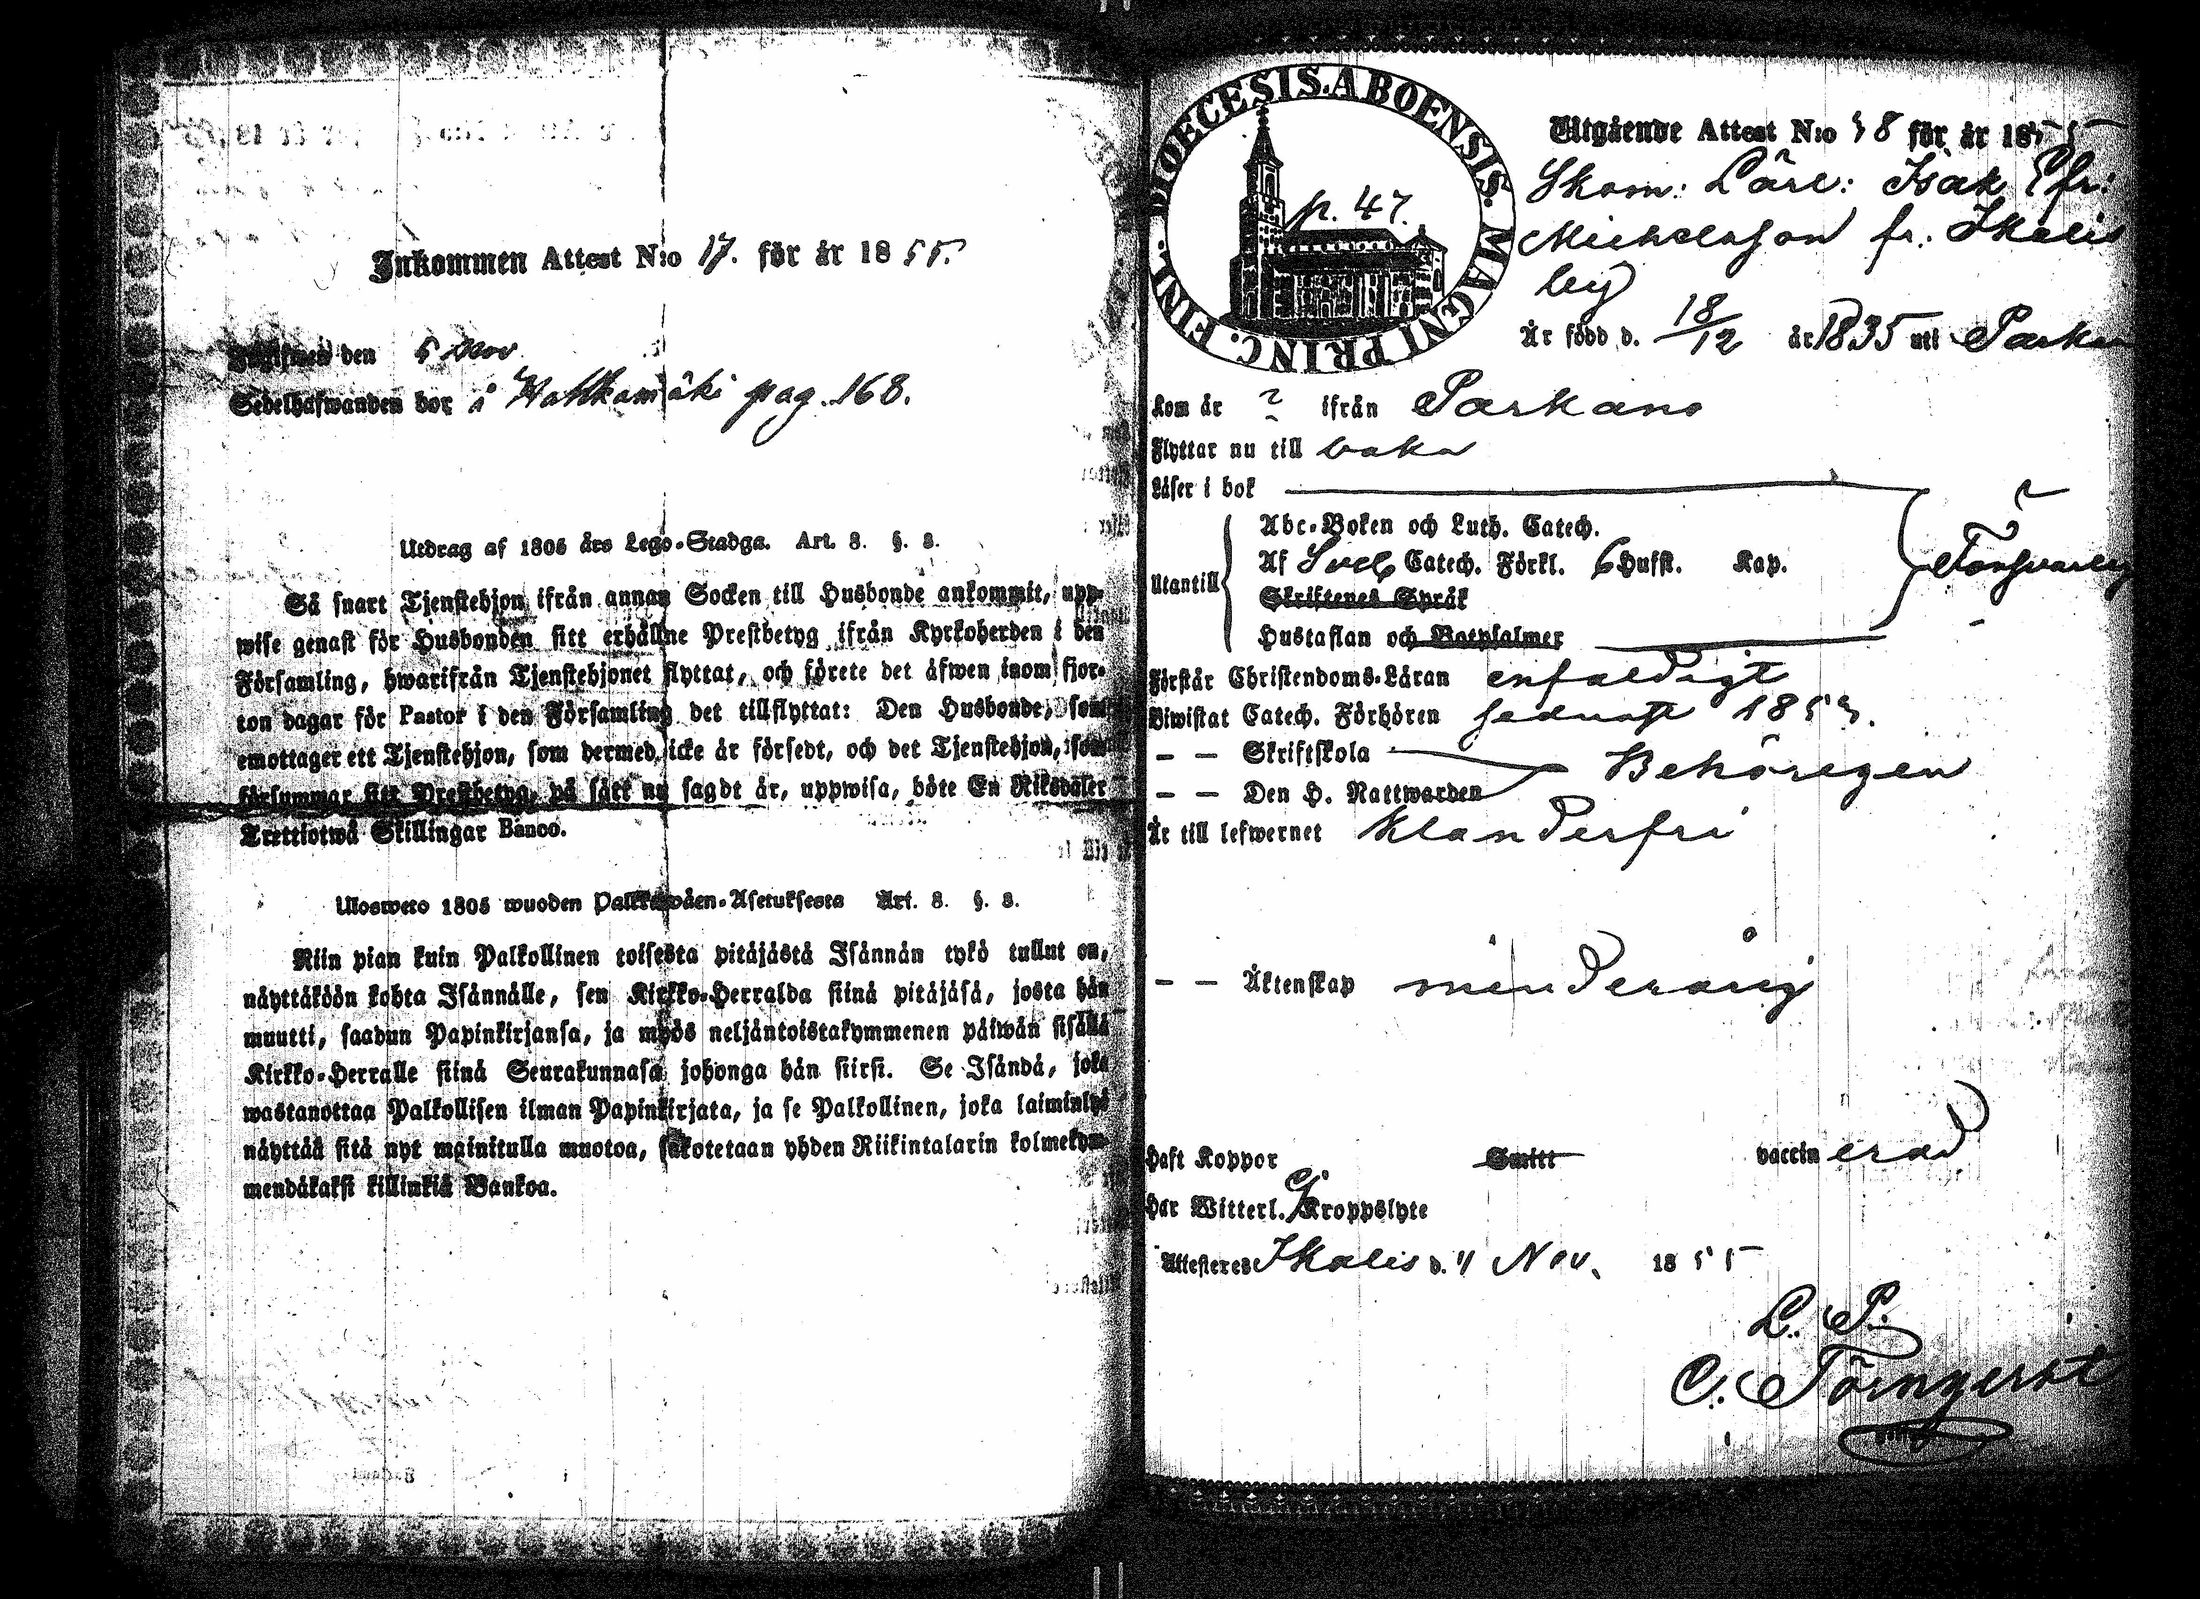 Inkommen Attest N:o 17. för år 1855.
den 5 Nov
Sedelhafwanden bor i Wahkamäki pag. 168.
Utdrag af 1805 års Lego-Stadga. Art. 8. §. 8.
Så snart Tjenstehjon ifrån annan Socken till Husbonde ankommit, upp-
wise genast för Husbonden sitt erhållne Prestbetyg ifrån Kyrkoherden i den
Församling, hwarifrån Tjenstehjonet flyttat, och förete det äfwen inom fjor-
ton dagar för Pastor i den Församling det tillflyttat: Den Husbonde, som
emottager ett Tjenstehjon, som dermed icke är försedt, och det Tjenstehjon, som
försummar sitt Prestbetyg, på sätt nu sagdt är, uppwisa, böte En Riksdaler
Trettiotwå Skillingar Banco.
Ulosweto 1805 wuoden Palkkawäen-Asetuksesta Art. 8. §. 8.
Niin pian kuin Palkollinen toisesta pitäjästä Isännän tykö tullut on,
näyttäköön kohta Isännälle, sen Kirkko-Herralda siinä pitäjäsä, josta hän
muutti, saadun Papinkirjansa, ja myös neljäntoistakymmenen päiwän sisällä
Kirkko-Herralle siinä Seurakunnasa johonga hän siirsi. Se Isändä, joka
wastanottaa Palkollisen ilman Papinkirjata, ja se Palkollinen, joka laiminlyö
näyttää sitä nyt mainitulla muotoa, sakotetaan yhden Riikintalarin kolmekym-
mendäkaksi killinkiä Bankoa.
DIOECESIS. ABOENSIS. MAGNI PRINC. FINL.
p. 47.
Utgående Attest N:o 38 för år 1855
Skom: Lärl: Isak Efr:
Michelsson fr. Ikalis
by
Är född d. 18/12 år 1835 uti Parkano
Kom år ? ifrån Parkano
Flyttar nu till baka
Läser i bok
Abc-Boken och Luth. Catech.
Utantill Af Sveb Catech. Förkl. 6 Hufst. Kap. Försvarlig
Skriftenes Språk
Hustaflan och Botpsalmer
Förstår Christendoms-Läran enfaldigt
Biwistat Catech. Förhören sednast 1853.
— — Skriftskola
Behörigen
— — Den H. Nattwarden
Är till lefwernet klanderfri
— — Äktenskap minderårig
Haft Koppor Smitt vaccinerad
Har Witterl. ej Kroppslyte
Attesteres Ikalis d. 4 Nov. 1855
L. P.
C. Törnqerst